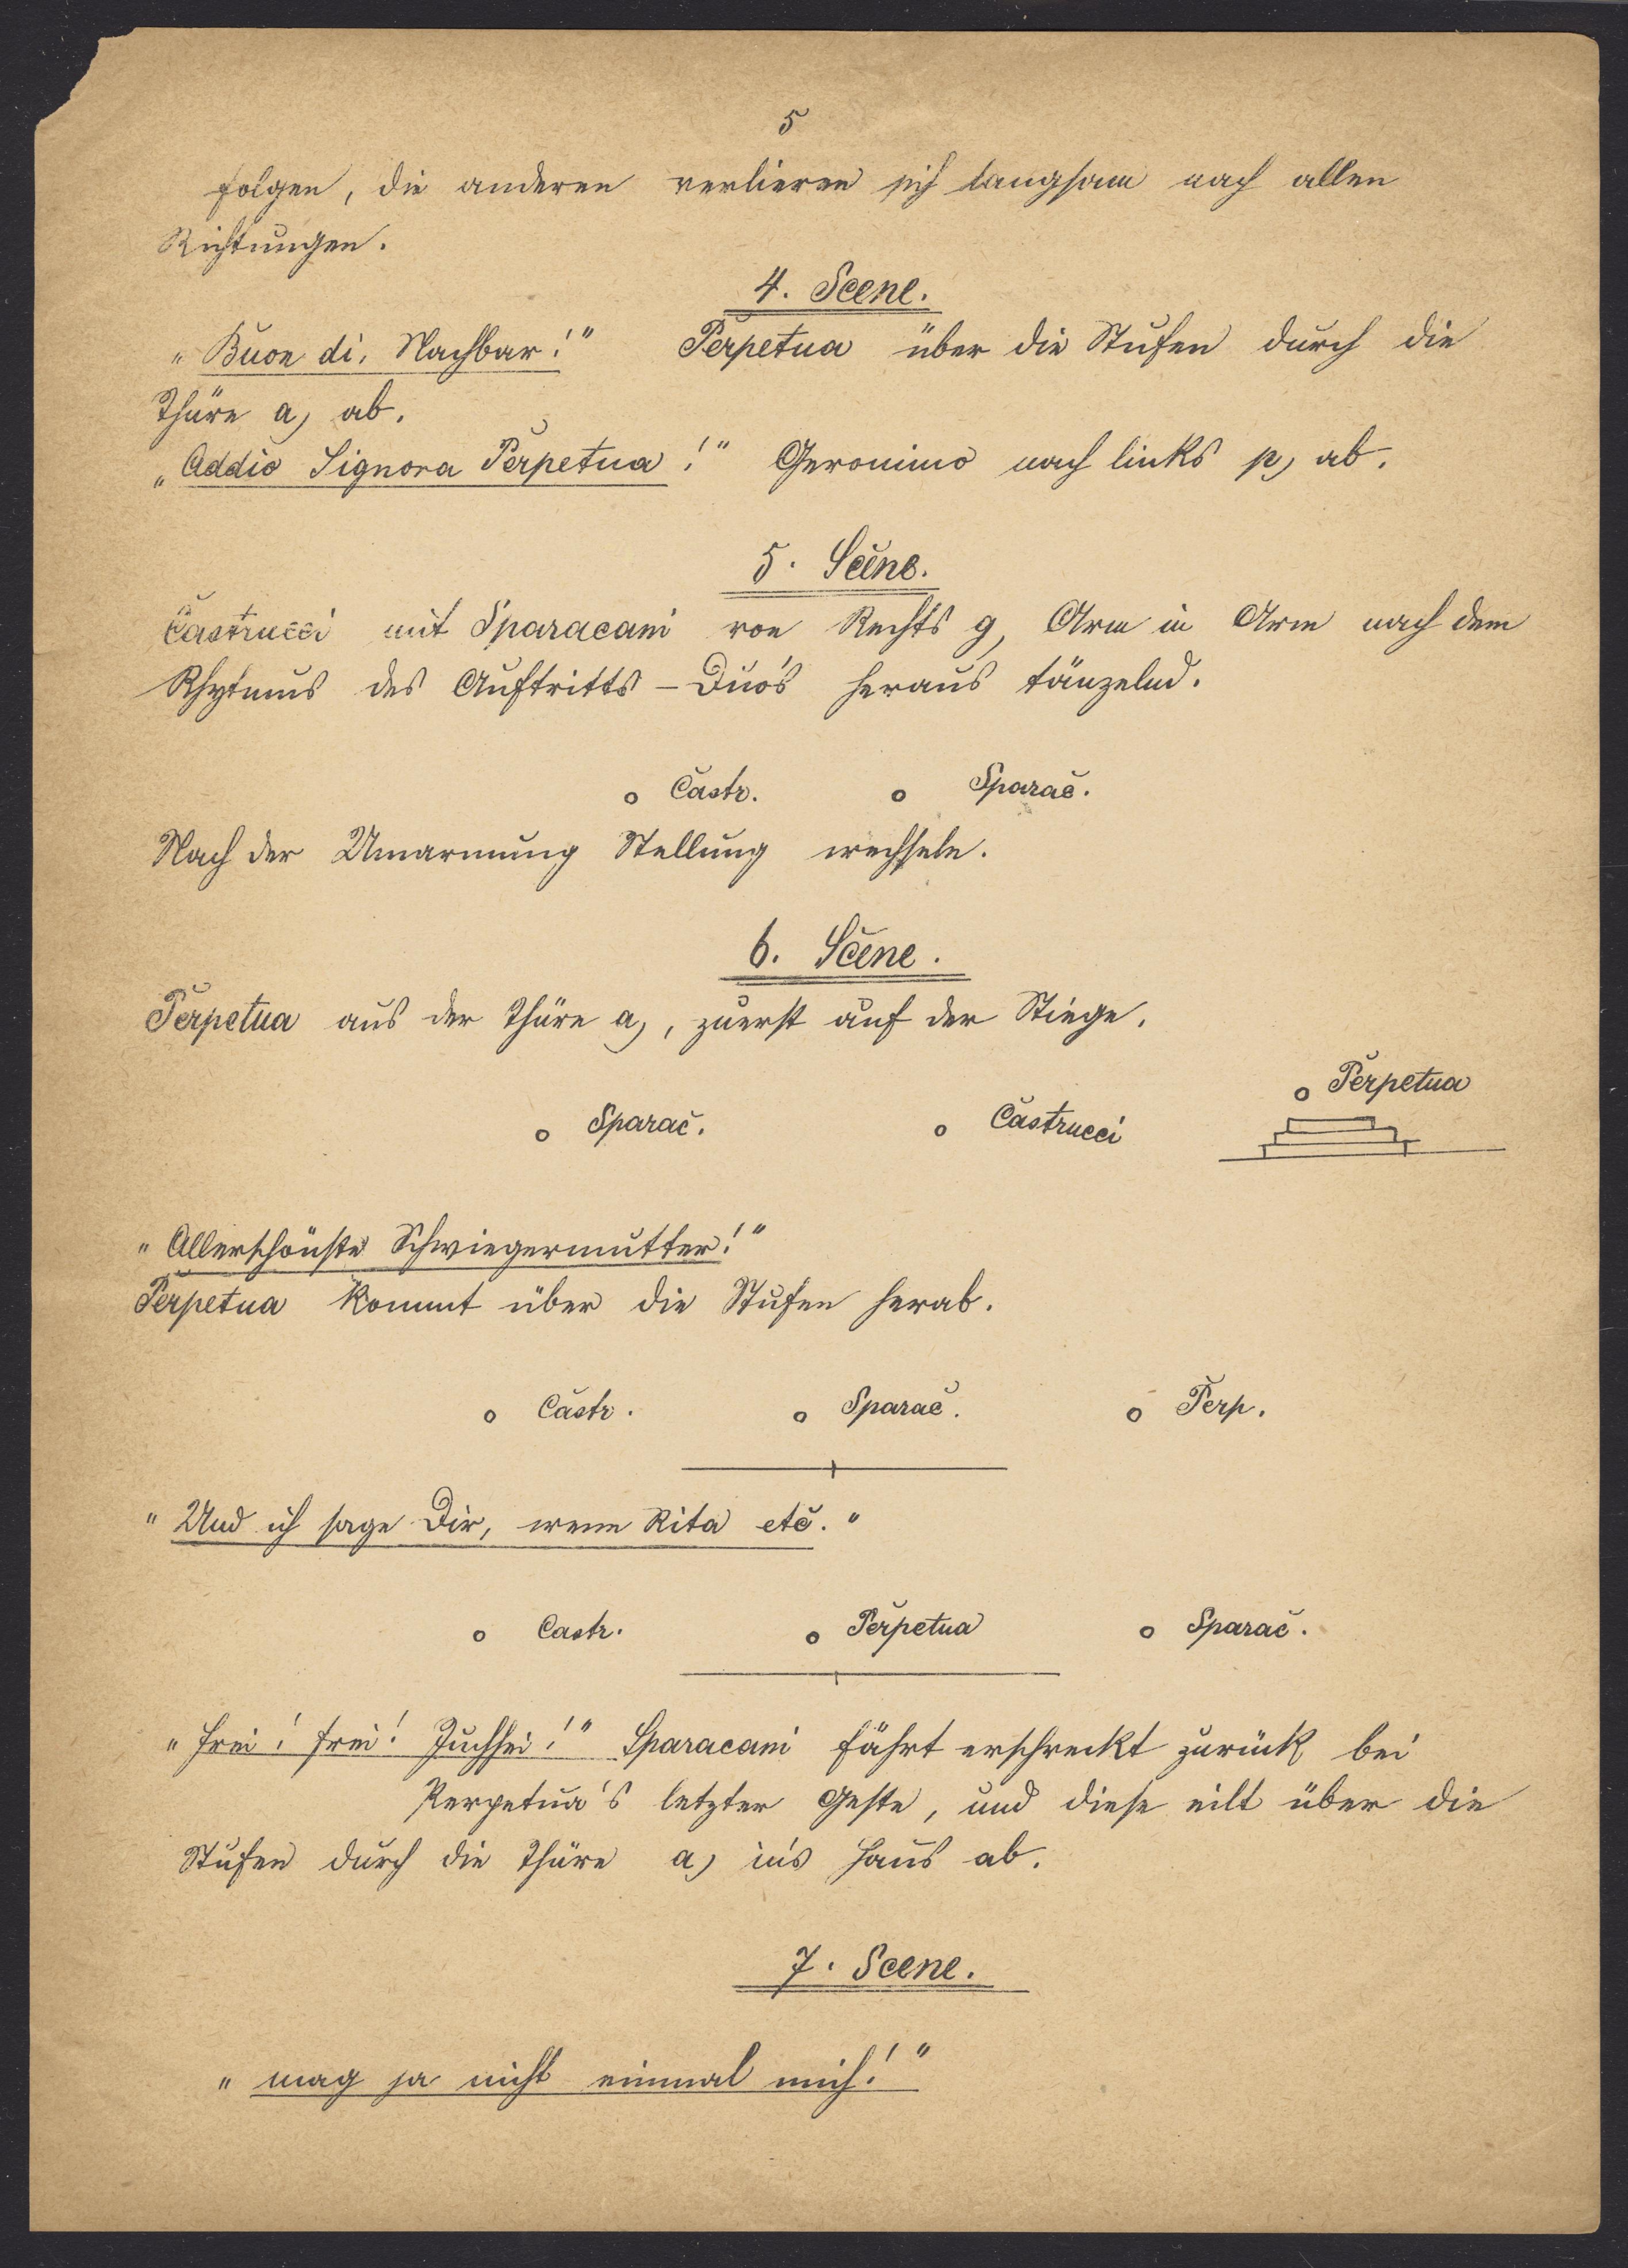 5
folgen, die anderen verlieren sich langsam nach allen
Richtungen.
4. Scene.
„Buon di, Nachbar!" Perpetua über die Stufen durch die
Thüre a) ab.
„Addio Signora Perpetua!" Geronimo nach links p) ab.
5. Scene.
Castrucci mit Sparacani von Rechts g, Arm in Arm nach dem
Rhytmus des Auftritts-Duo's heraus tänzelnd.
o Castr. o Sparac.
Nach der Umarmung Stellung wechseln.
6. Scene.
Perpetua aus der Thüre a), zuerst auf der Stiege.
o Perpetua
o Sparac. o Castrucci
„Allerschönste Schwiegermutter!"
Perpetua kommt über die Stufen herab.
o Castr. o Sparac. o Perp.
„Und ich sage Dir, wenn Rita etc."
o Castr. o Perpetua o Sparac.
„Frei! frei! Juchhei!" Sparacani fährt erschreckt zurück bei
Perpetua's letzter Geste, und diese eilt über die
Stufen durch die Thüre a) in's Haus ab.
7. Scene.
„mag ja nicht einmal mich!"